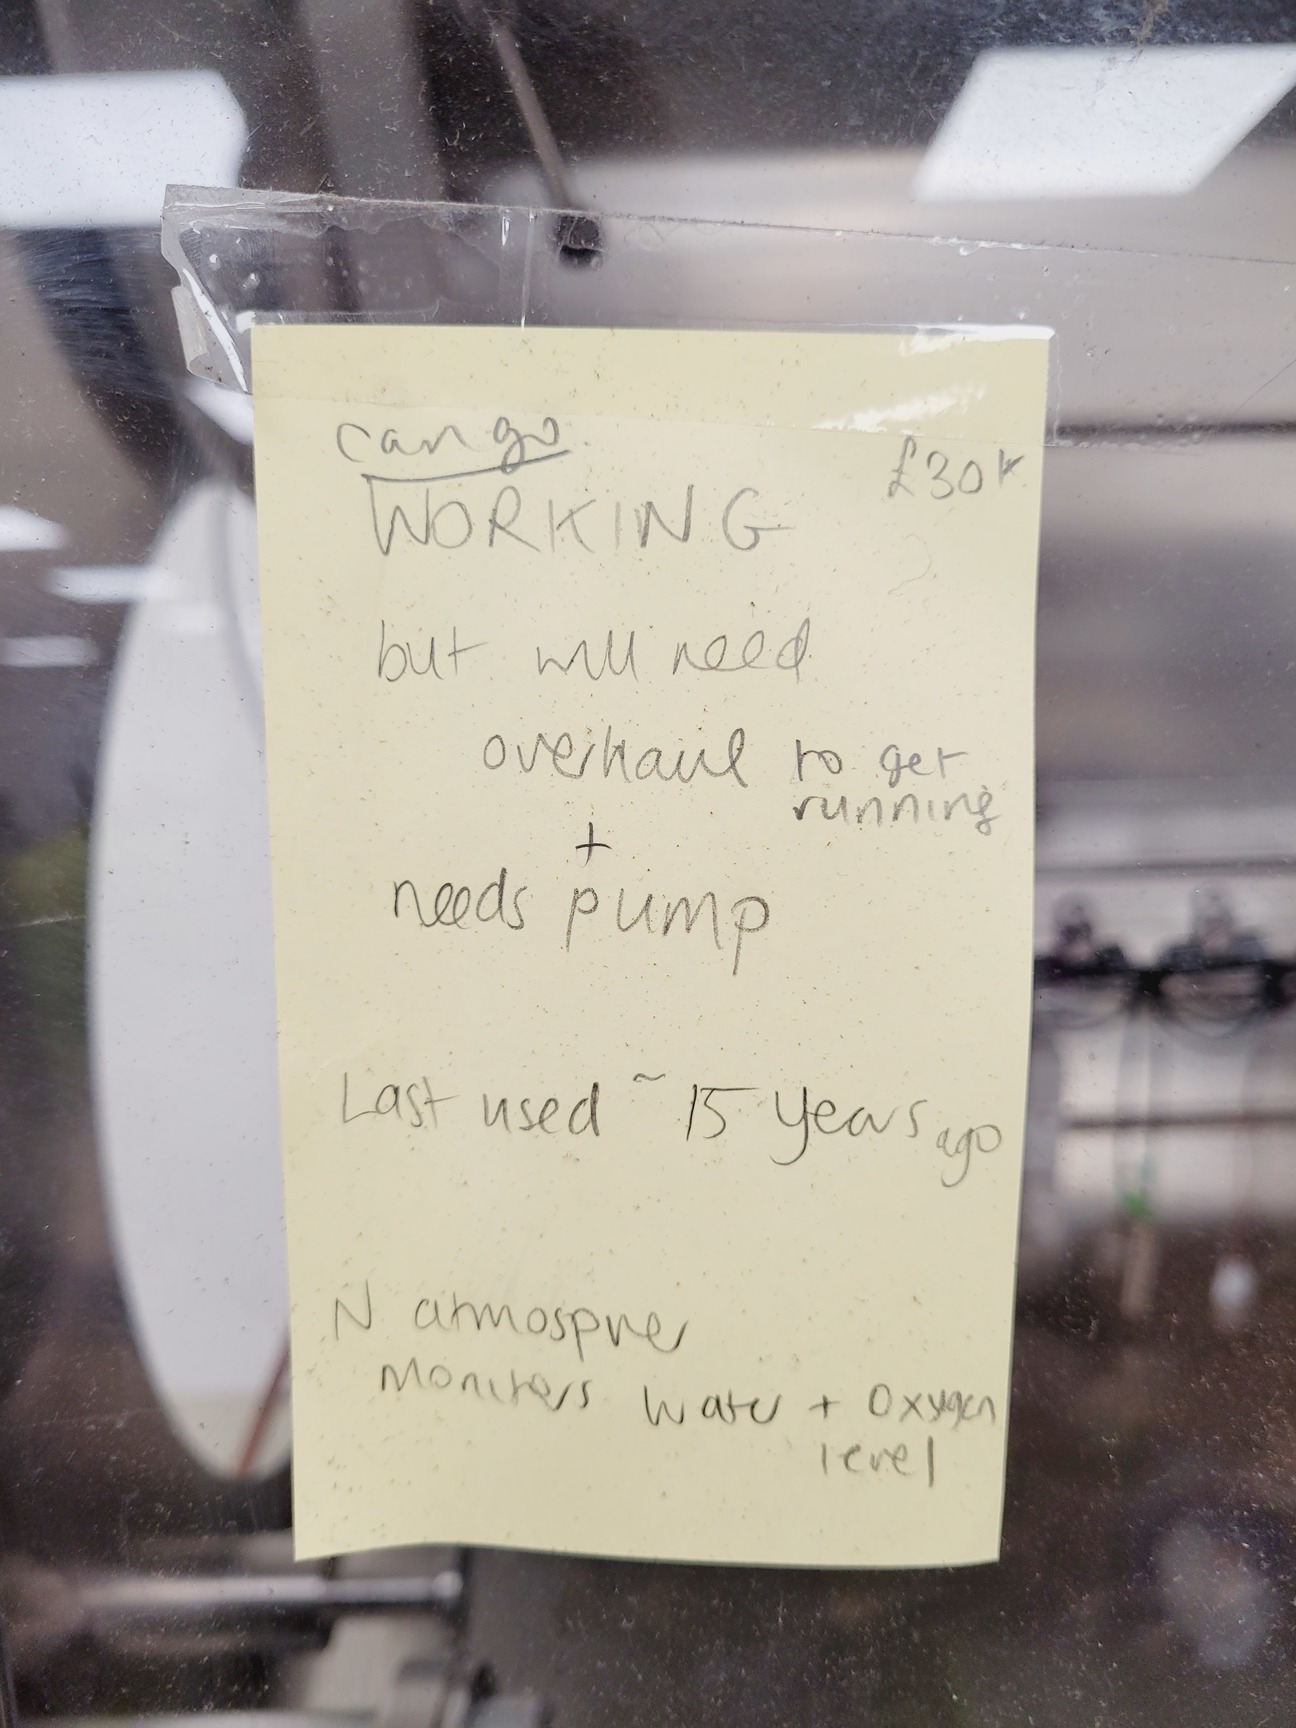 can go.
£30K
WORKING
but will need
overhaul to get
running
+
needs pump
Last used ~ 15 years ago
N atmospher
Moniters water + Oxygen
level